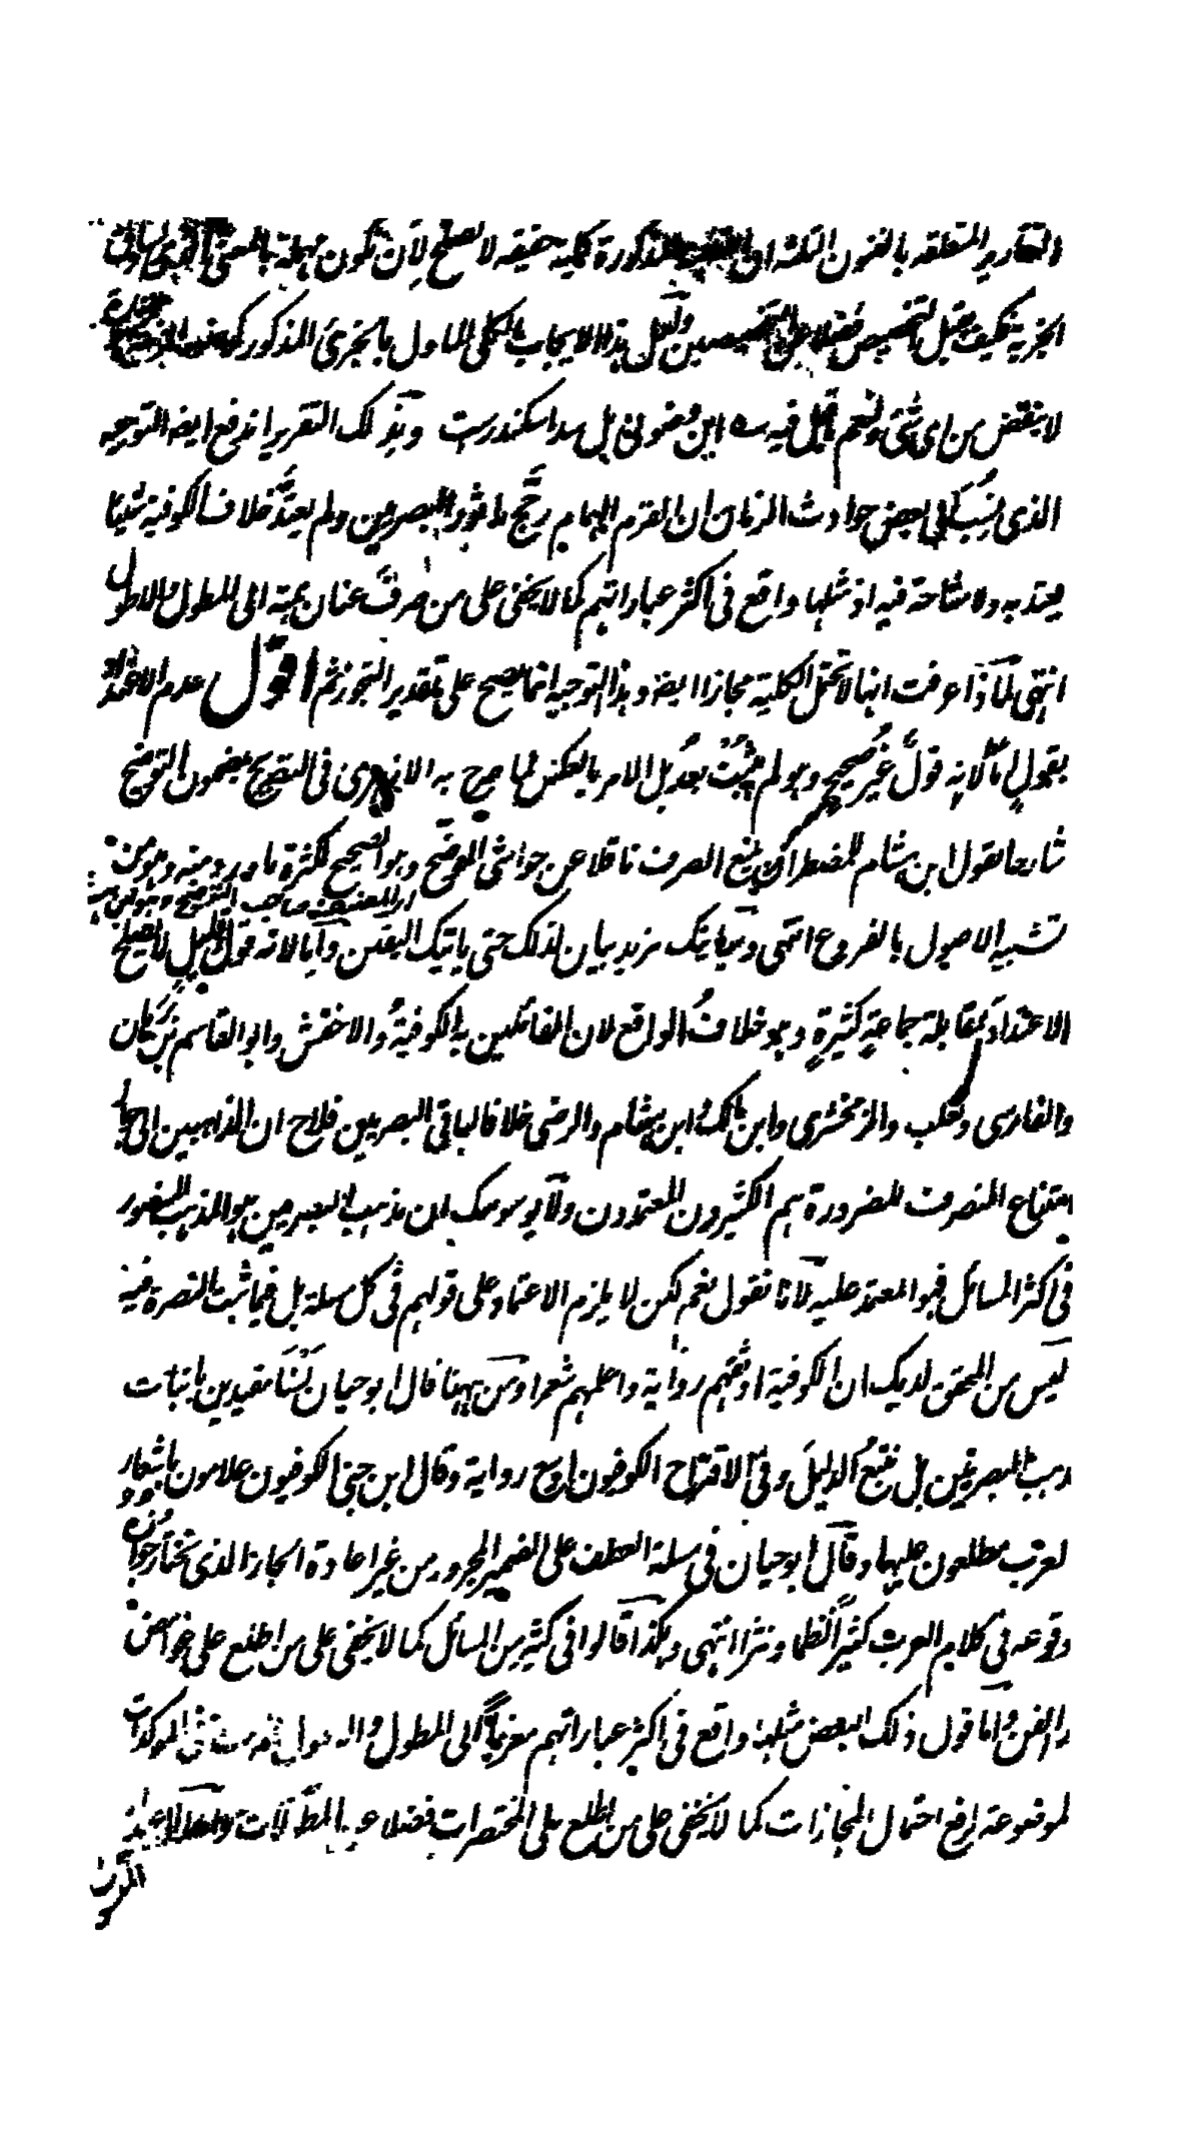 التقارير المتعلقه بالفنون الثلثه ان المذكورة كلية حقيقه لا تصلح لان تكون مهملة
الجزية فكيف يقبل التخصيص فضلا عن التخصيصين ولعل هذا الايجاب الكلى الماول بالجزئ المذكور
لا ينقض من اى شئ ولنعم قيل فيه ابن بل سد اسكندرست وبذلك التقرير اندفع ايضا التوجيه
الذى نسب الى بعض حوادث الزمان ان القرم الهمام رجح ما للبصرين ولم يعتد خلاف الكوفية شيئا
يعتد به ولا مشاحة فيه اذ مثلها واقع فى اكثر عباراتهم كما لا يخفى على من صرف عنان همته الى المطول والاطول
انتهى لما ذا عرفت انها لا تحتمل الكلية مجازا ايضا وهذا التوجيه انما يصح على تقدير التجوز ثم اقول عدم الاعتداد
بقول اما لانه قول غير صحيح وهو لم يثبت بعد بل الامر بالعكس لما صرح به الازهرى فى التصريح بمضمون التوضيح
شارحا لقول ابن هشام للمضطر ان يمنع الصرف ناقلا عن حواشى الموضح وهو الصحيح لكثرة ما ورد منه وهو من
اى المصنف صاحب التوضيح وهو ابن
تشبيه الاصول بالفروع انتهى وسياتيك مزيد بيان لذلك حتى ياتيك اليقين واما لانه قول قليل لا يصلح
الاعتداد بمقابلة جماعة كثيرة وهو خلاف الواقع لان القائلين به الكوفية والاخفش وابو القاسم بن برهان
والفارسى وثعلب والزمخشرى وابن مالك وابن هشام والرضى خلافا لباقى البصريين فلاح ان الذاهبين الى
امتناع المنصرف للضرورة هم الكثيرون المعتمدون ولا يوسوسك ان مذهب البصرين هو المذهب المنصور
فى اكثر المسائل فهو المعتمد عليه لانا نقول نعم لكن لا يلزم الاعتماد على قولهم فى كل مسئلة بل فيما ثبت النصرة فيه
ليس من المحقق لديك ان الكوفية اوثقهم رواية واعلمهم شعرا ومن ههنا قال ابو حيان لسنا مقيدين باثبات
مذهب البصريين بل نتبع الدليل وفى الاقتراح الكوفيون اوسع رواية وقال ابن جنى الكوفيون علامون باشعار
لعرب مطلعون عليها وقال ابو حيان فى مسئلة العطف على الضمير المجرور من غير اعادة الجار الذى نختار جوازه
وقوعه فى كلام العرب كثيرا نظما ونثرا انتهى وهكذا قالوا فى كثير من المسائل كما لا يخفى على من اطلع على غوامض
الفن واما قول ذلك البعض مثلها واقع فى اكثر عباراتهم معزيا الى المطول
لموضوعة لرفع احتمال المجازات كما لا يخفى على من اطلع على المختصرات فضلا عن المطولات